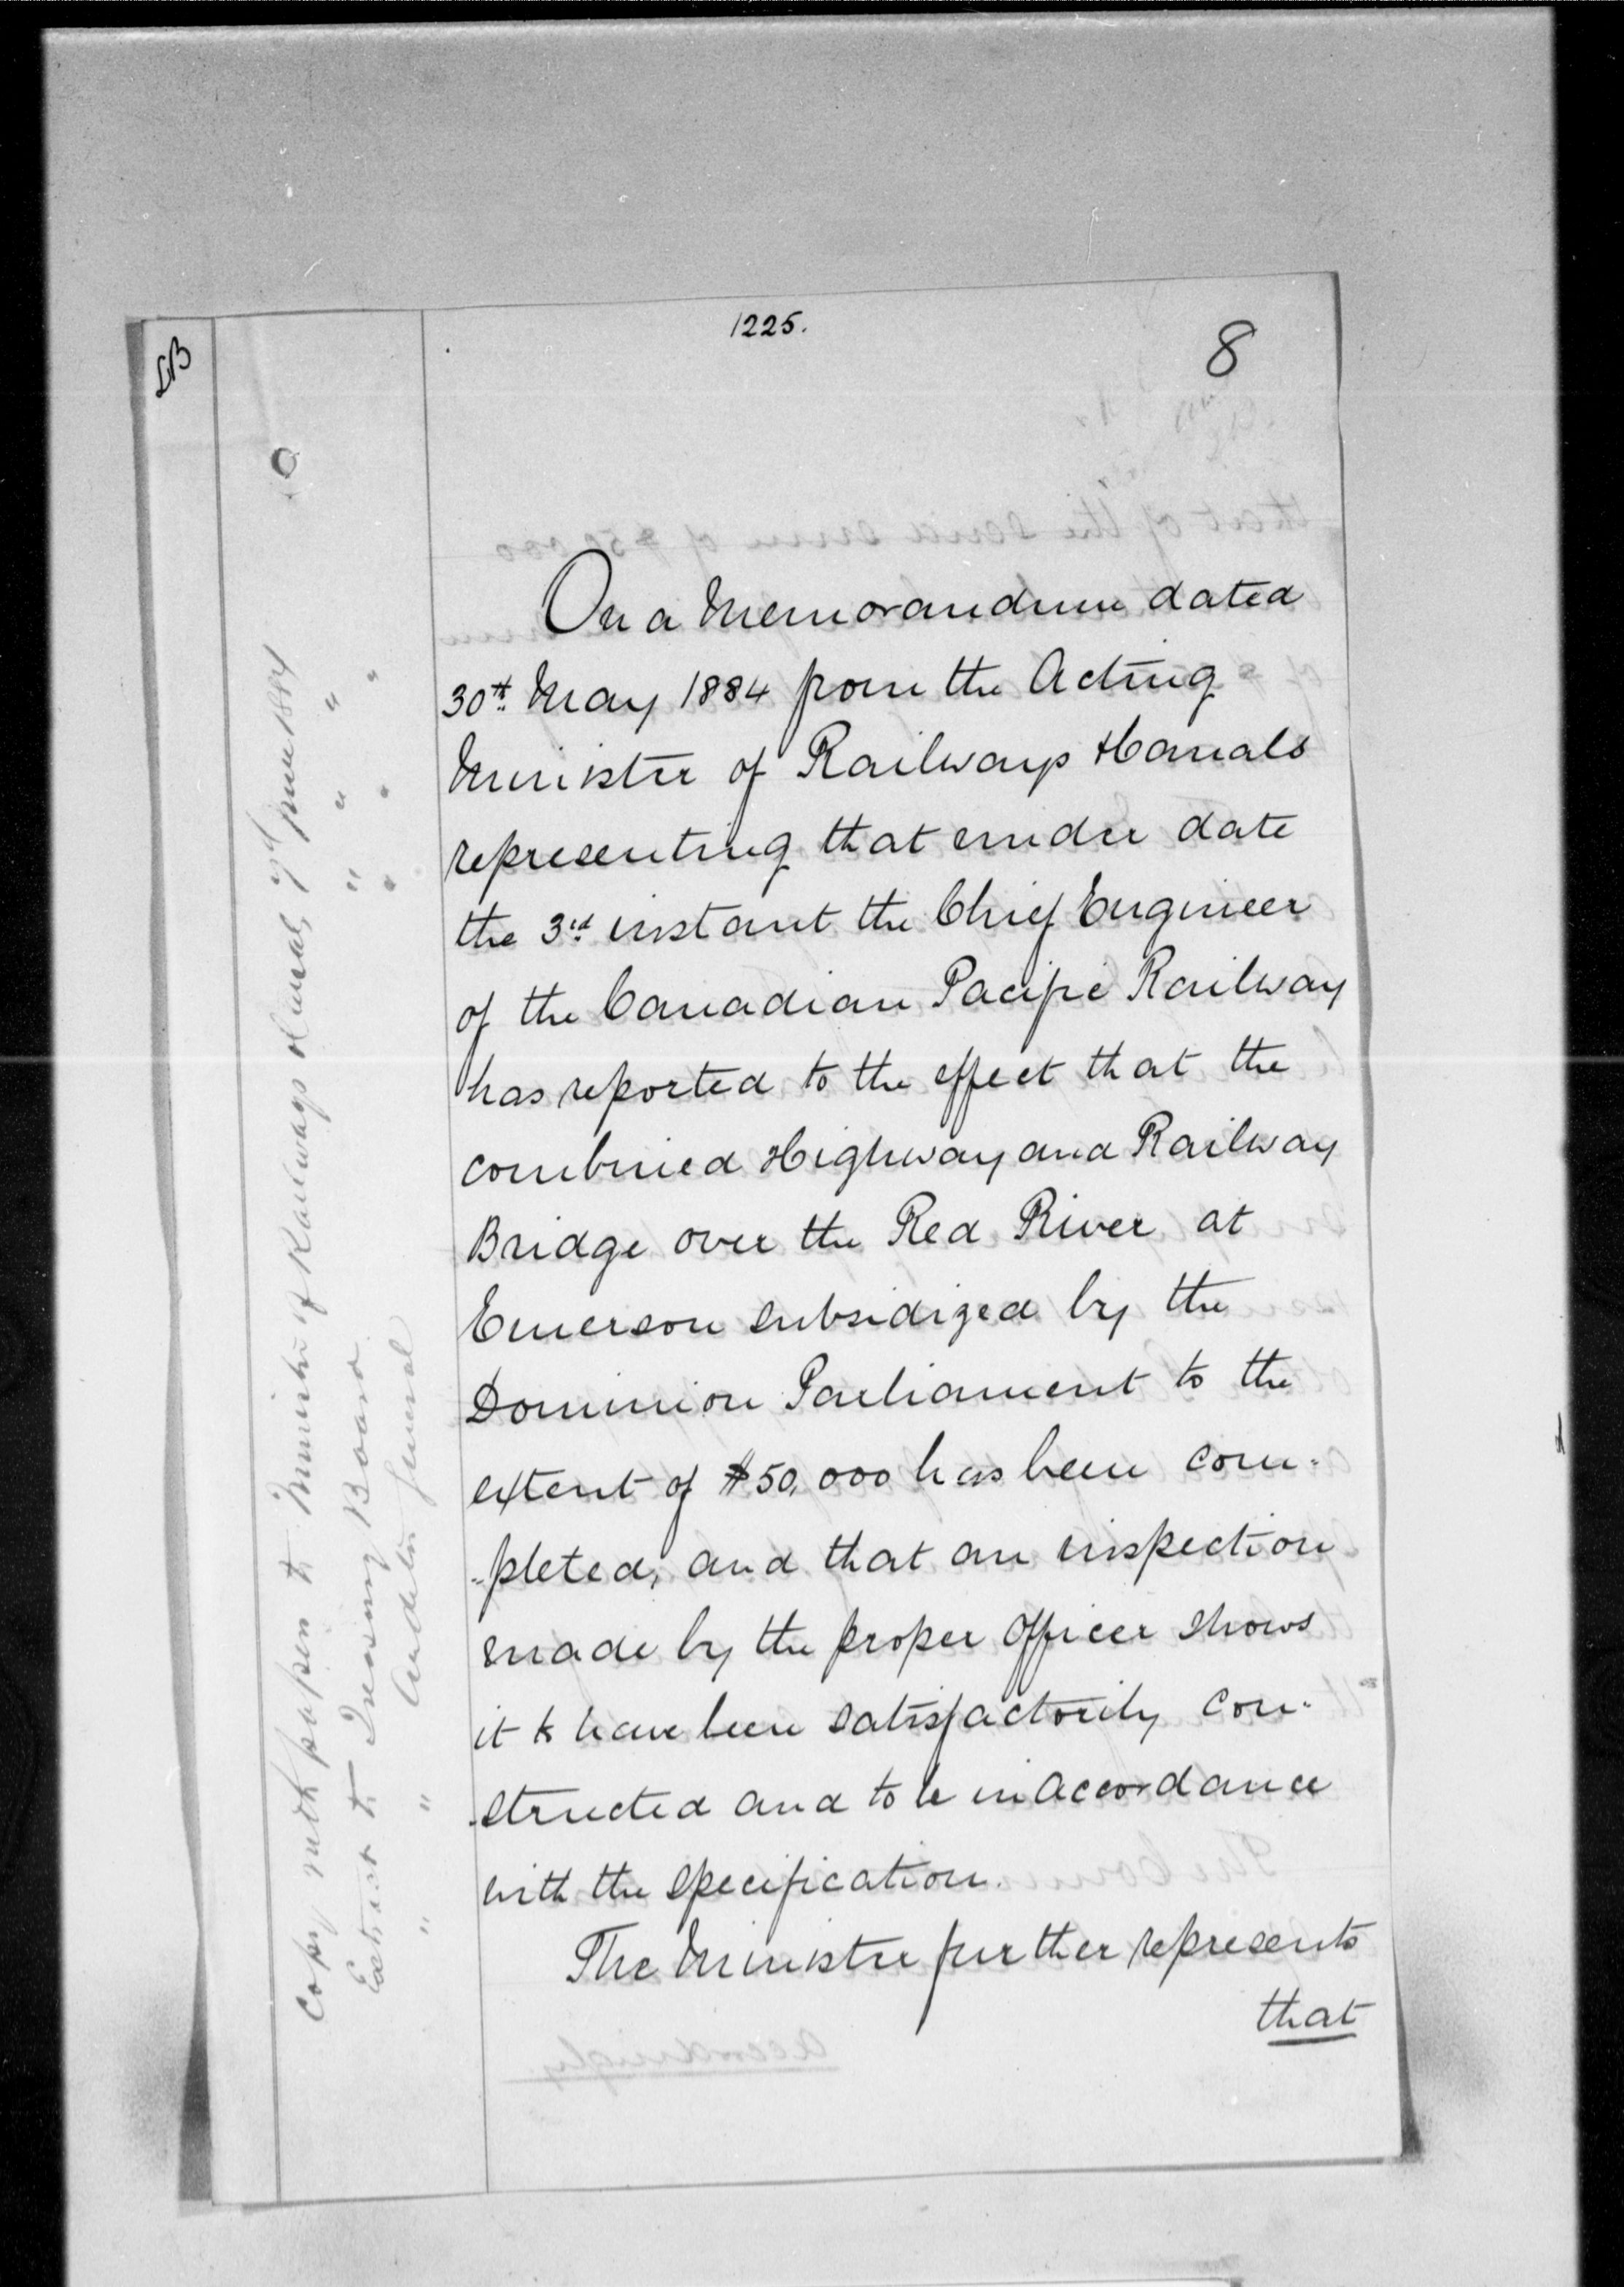 1225.
8
LB
On a Memorandum dated
30th May 1884 from the Acting
Minister of Railways & Canals
representing that under date
the 3rd instant the Chief Engineer
of the Canadian Pacific Railway
has reported to the effect that the
combined Highway and Railway
Bridge over the Red River at
Emerson subsidized by the
Dominion Parliament to the
extent of $50,000 has been com-
-pleted, and that an inspection
made by the proper Officer shows
it to have been satisfactorily con-
-structed and to be in accordance
with the specification.
The Minister further represents
that
Copy with papers to Minister of Railways & Canals, 7th June 1884
Extract to Treasury Board " " "
" " Auditor General " " "